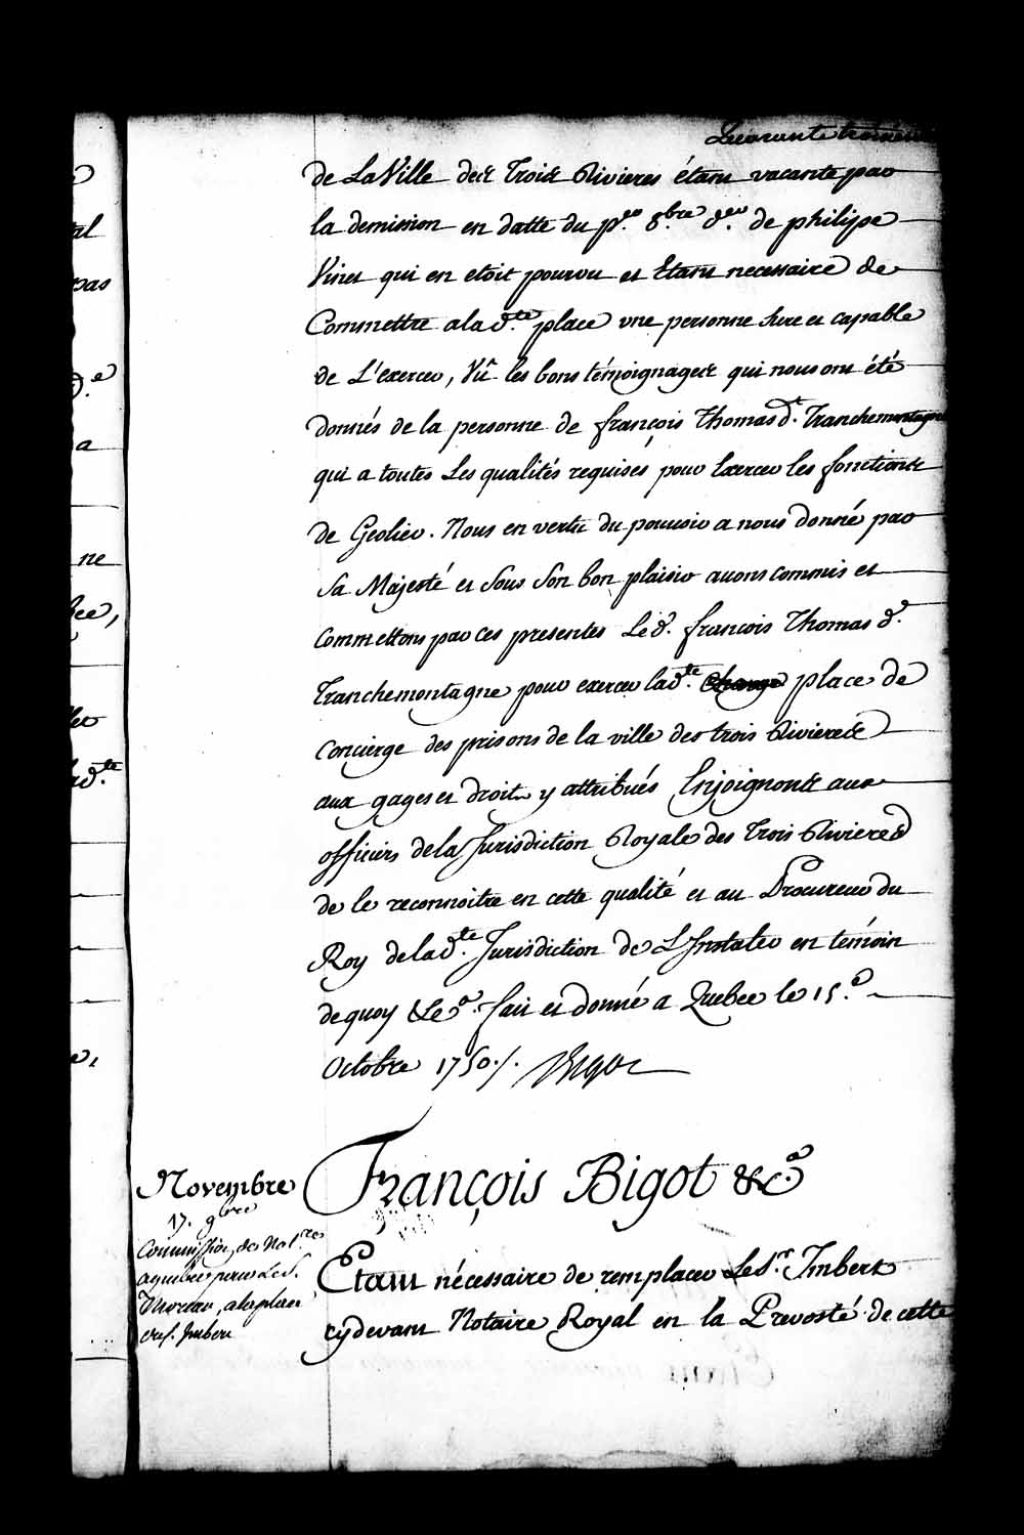 Quarante troisieme
de La Ville des Trois Rivieres étant vacante par
la demission en datte du p.er 8.bre d.er de philipe
Vinet qui en etoit pourvu et Etant necessaire de
Commettre a lad.te place une personne sure et capable
de L'exercer, Vû les bons témoignages qui nous ont été
donnés de la personne de françois Thomas d.t Tranchemontagne
qui a toutes Les qualités requises pour Exercer les fonctions
de Geolier. Nous en vertu du pouvoir a nous donné par
Sa Majesté et Sous Son bon plaisir avons commis et
Commettons par ces presentes Led. francois Thomas d.t
Tranchemontagne pour exercer lad.te charge place de
Concierge des prisons de la ville des trois Rivieres
aux gages et droits y attribués Enjoignons aux
officiers de la Jurisdiction Royale des Trois Rivieres
de le reconnoitre en cette qualité et au Procureur du
Roy de lad.te Jurisdiction de L'Instaler en temoin
de quoy &c.a fait et donné a Quebec le 15.e
Octobre 1750./. Bigot
François Bigot &c.a
Novembre
17. 9bre
Commission de Not.re
a quebec pour Le S.
Moreau, a la place
du S. Imbert
Etant nécessaire de remplacer Le S.r Imbert
cy devant Notaire Royal en la Prevosté de cette